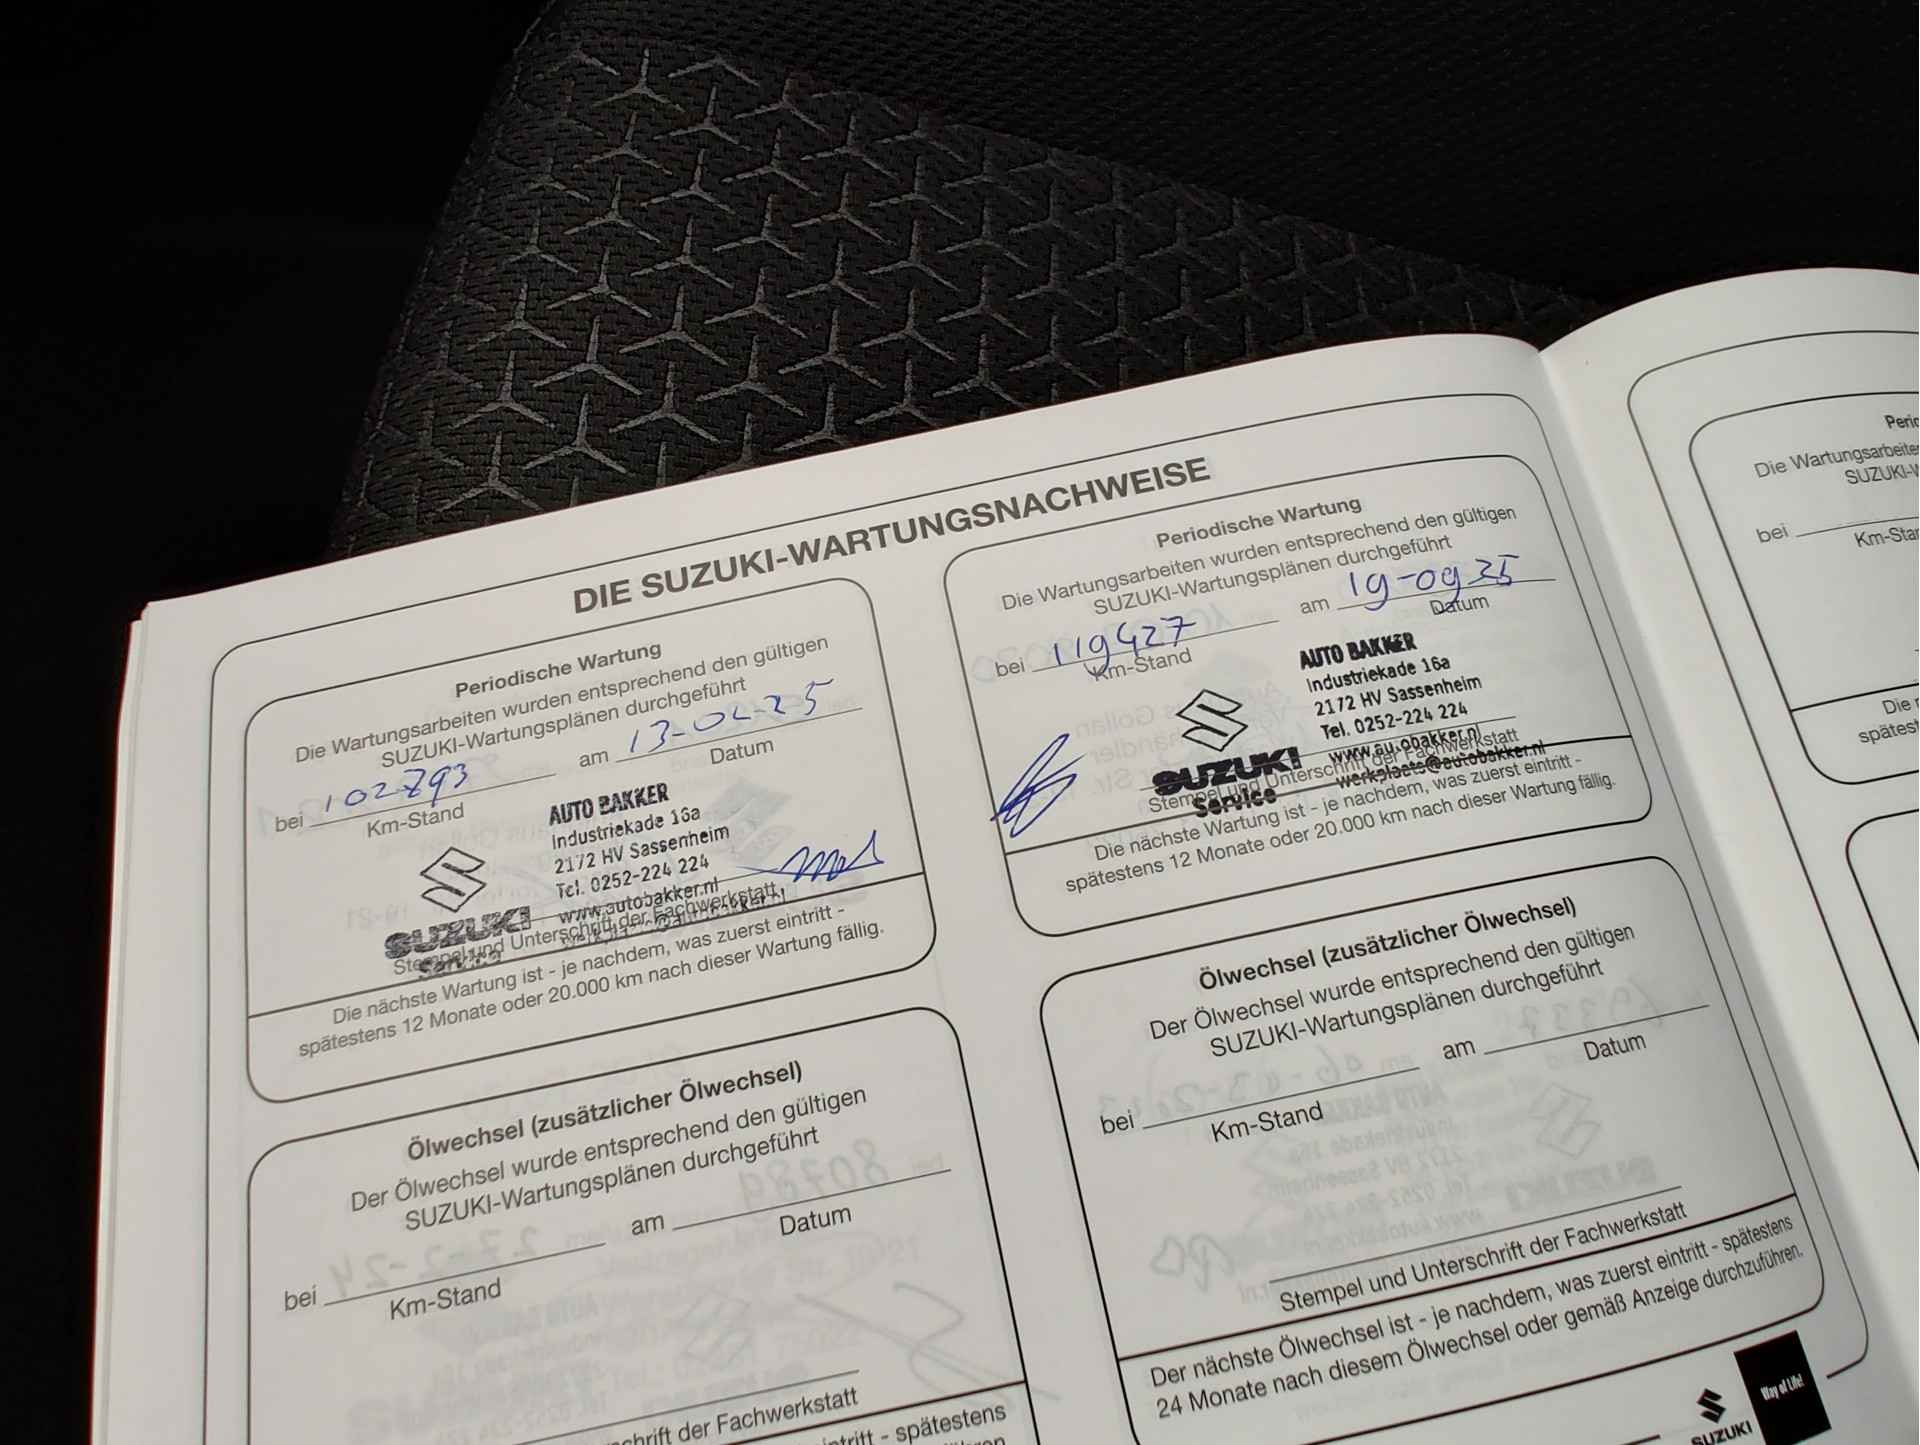 DIE SUZUKI-WARTUNGSNACHWEISE
Periodische Wartung
Die Wartungsarbeiten wurden entsprechend den gültigen
SUZUKI-Wartungsplänen durchgeführt
bei 102893 am 13-02-25
Km-Stand Datum
AUTO BAKKER
Industriekade 16a
2172 HV Sassenheim
Tel. 0252-224 224
www.autobakker.nl
SUZUKI
Service
Stempel und Unterschrift der Fachwerkstatt
Die nächste Wartung ist - je nachdem, was zuerst eintritt -
spätestens 12 Monate oder 20.000 km nach dieser Wartung fällig.
Periodische Wartung
Die Wartungsarbeiten wurden entsprechend den gültigen
SUZUKI-Wartungsplänen durchgeführt
bei 119427 am 19-09
Km-Stand Datum
AUTO BAKKER
Industriekade 16a
2172 HV Sassenheim
Tel. 0252-224 224
www.autobakker.nl
werkplaats@autobakker.nl
SUZUKI
Service
Stempel und Unterschrift der Fachwerkstatt
Die nächste Wartung ist - je nachdem, was zuerst eintritt -
spätestens 12 Monate oder 20.000 km nach dieser Wartung fällig.
Ölwechsel (zusätzlicher Ölwechsel)
Der Ölwechsel wurde entsprechend den gültigen
SUZUKI-Wartungsplänen durchgeführt
bei am
Km-Stand Datum
chrift der Fachwerkstatt
ntritt - spätestens
Ölwechsel (zusätzlicher Ölwechsel)
Der Ölwechsel wurde entsprechend den gültigen
SUZUKI-Wartungsplänen durchgeführt
bei am
Km-Stand Datum
Stempel und Unterschrift der Fachwerkstatt
Der nächste Ölwechsel ist - je nachdem, was zuerst eintritt - spätestens
24 Monate nach diesem Ölwechsel oder gemäß Anzeige durchzuführen.
SUZUKI
Way of Life!
Perio
Die Wartungsarbeite
SUZUKI-W
bei
Km-Star
Die
spätest